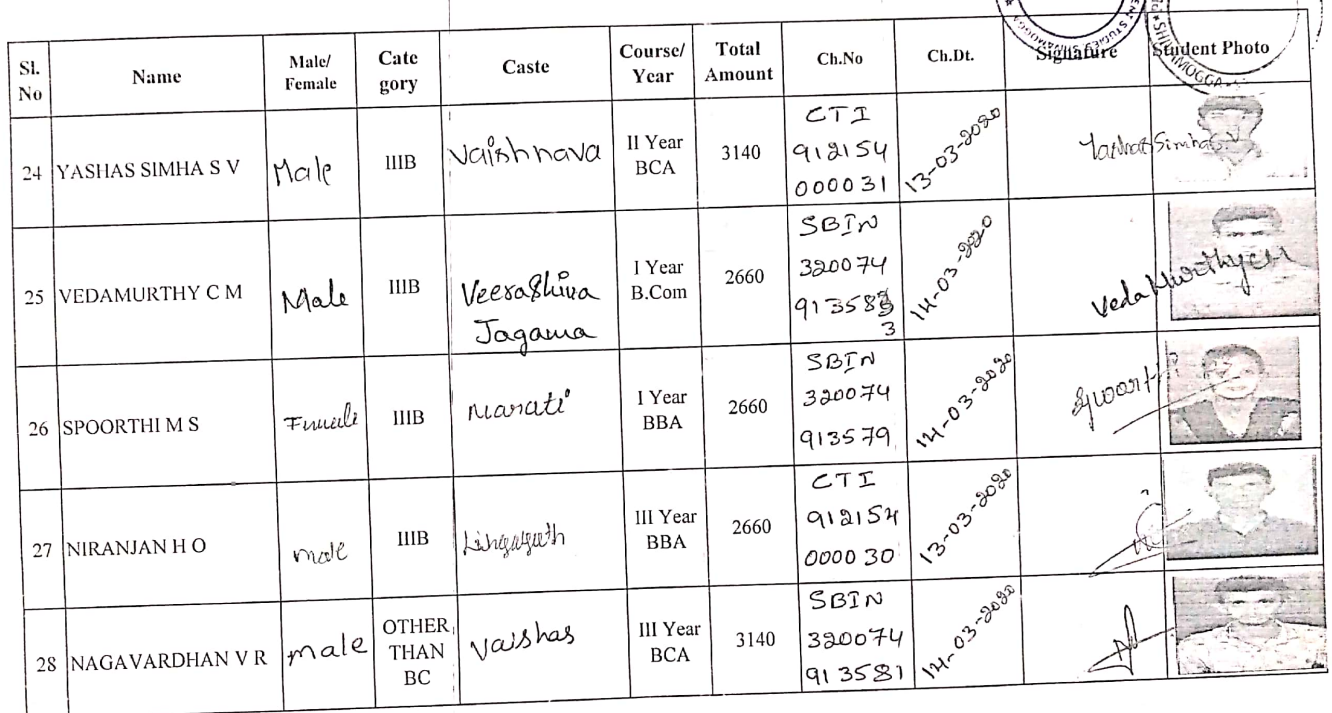 Sl. No Name Male/ Female Cate gory Caste Course/ Year Total Amount Ch.No Ch.Dt. Signature Student Photo
SHIMOGGA
24 YASHAS SIMHA S V Male IIIB Vaishnava II Year BCA 3140 CTI 912154 000031 13-03-2020 Simha
25 VEDAMURTHY C M Male IIIB Veerashiva Jagama I Year B.Com 2660 SBIN 320074 91358 3 14-03-2020 VedaMurthycm
26 SPOORTHI M S Female IIIB Marati I Year BBA 2660 SBIN 320074 913579 14-03-2020
27 NIRANJAN H O male IIIB III Year BBA 2660 CTI 912154 000030 13-03-2020
28 NAGAVARDHAN V R male OTHER THAN BC Vaishas III Year BCA 3140 SBIN 320074 913581 14-03-2020